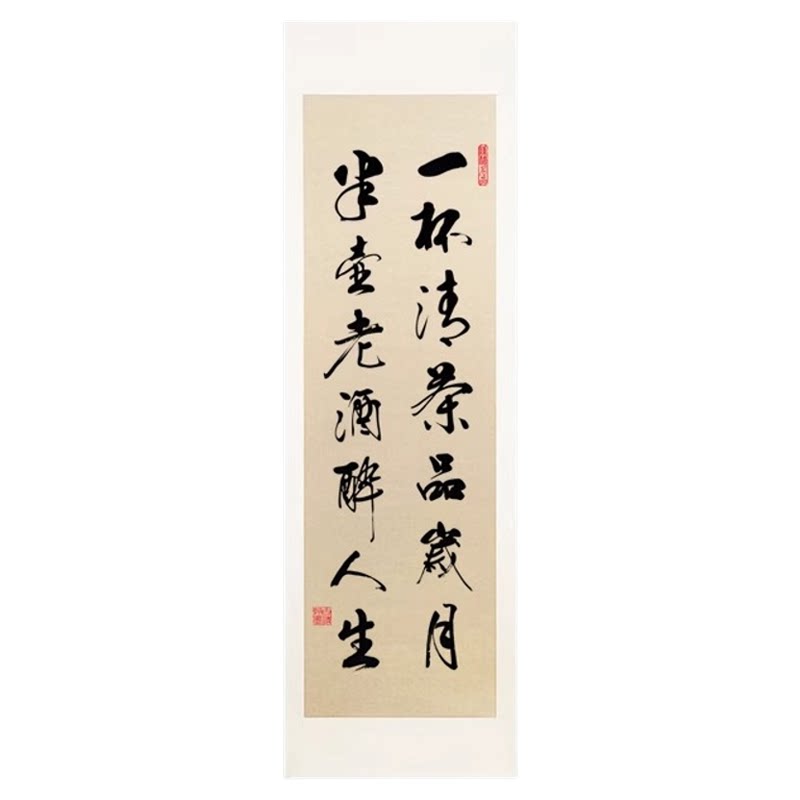 一杯清茶品歲月
半壺老酒醉人生